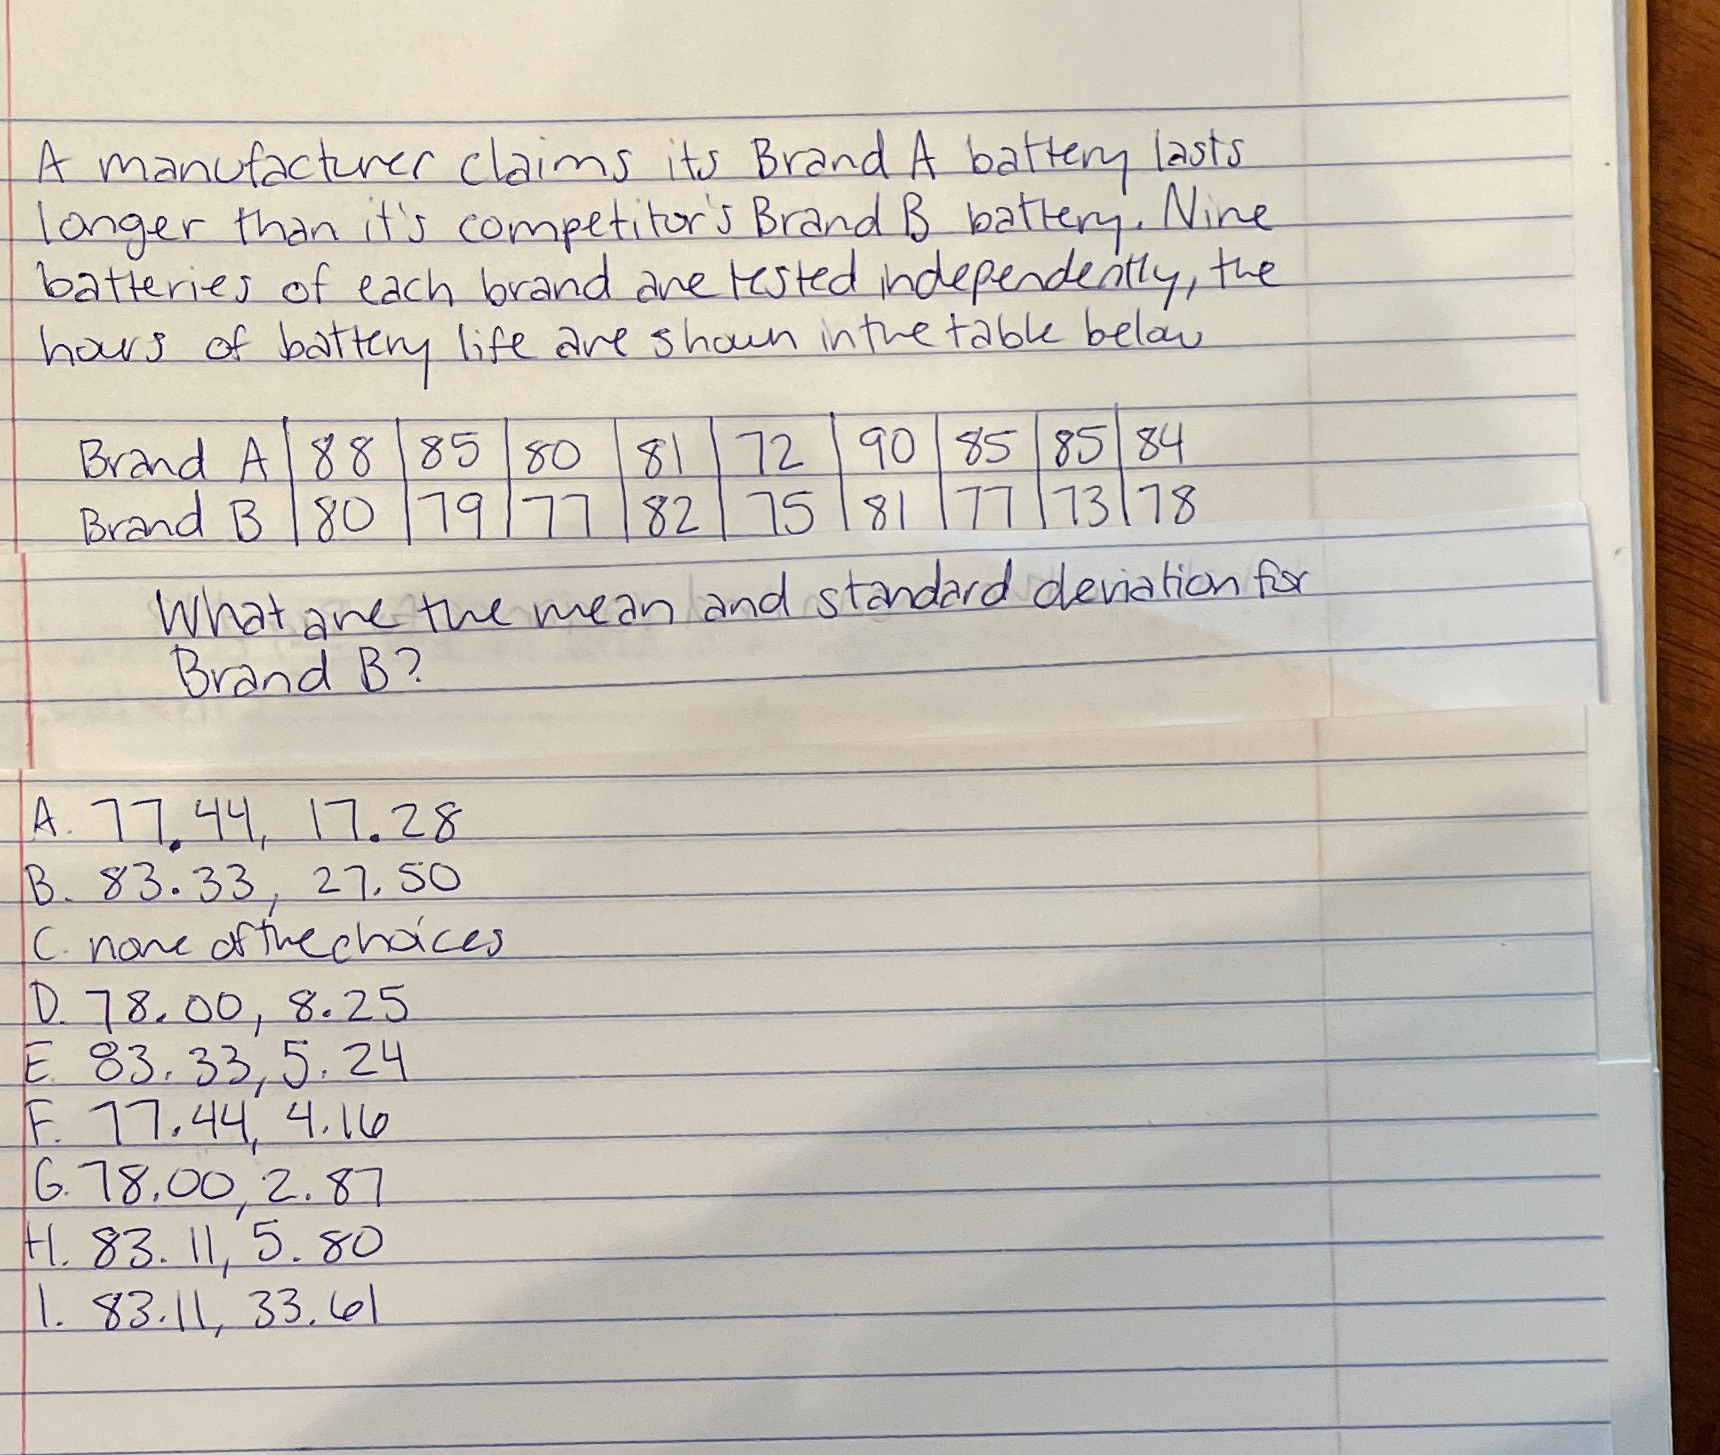 A manufacturer claims its Brand A battery lasts
longer than it's competitor's Brand B battery. Nine
batteries of each brand are tested independently, the
hours of battery life are shown in the table below
Brand A 88 85 80 81 72 90 85 85 84
Brand B 80 79 77 82 75 81 77 73 78
What are the mean and standard deviation for
Brand B?
A. 77.44, 17.28
B. 83.33, 27.50
C. none of the choices
D. 78.00, 8.25
E. 83.33, 5.24
F. 77.44, 4.16
G. 78.00, 2.87
H. 83.11, 5.80
I. 83.11, 33.61